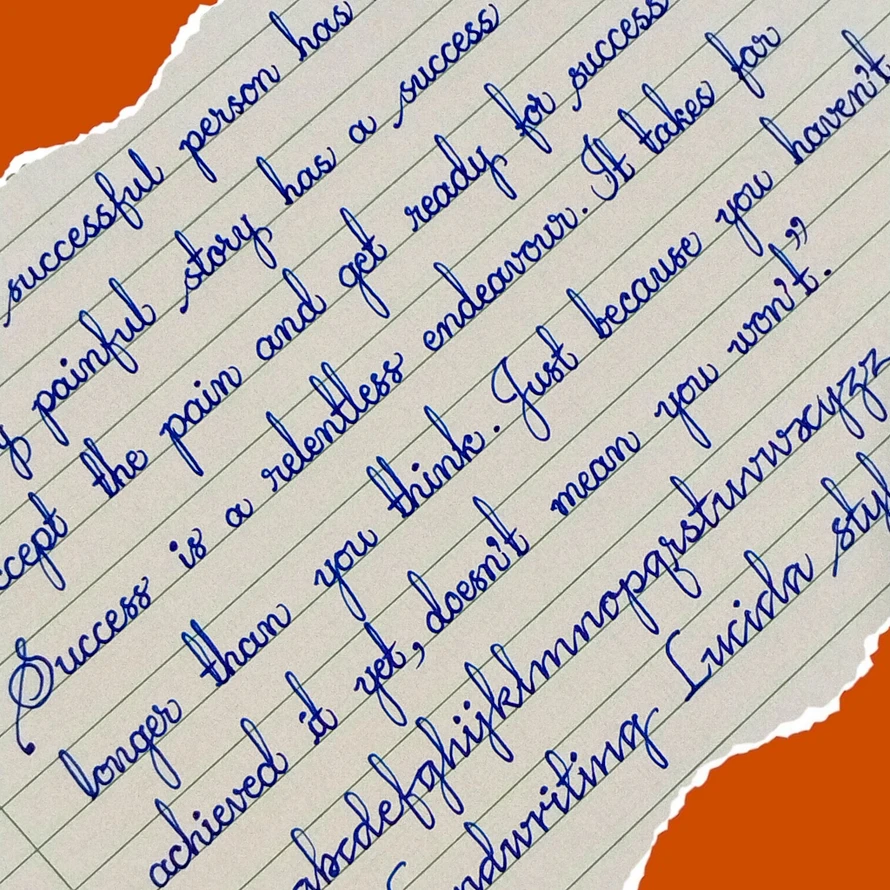 successful person has
painful story has a success
the pain and get ready for success
Success is a relentless endeavour. It takes far
longer than you think. Just because you haven't
achieved it yet, doesn't mean you won't."
abcdefghijklmnopqrstuvwxyzz
Lucida